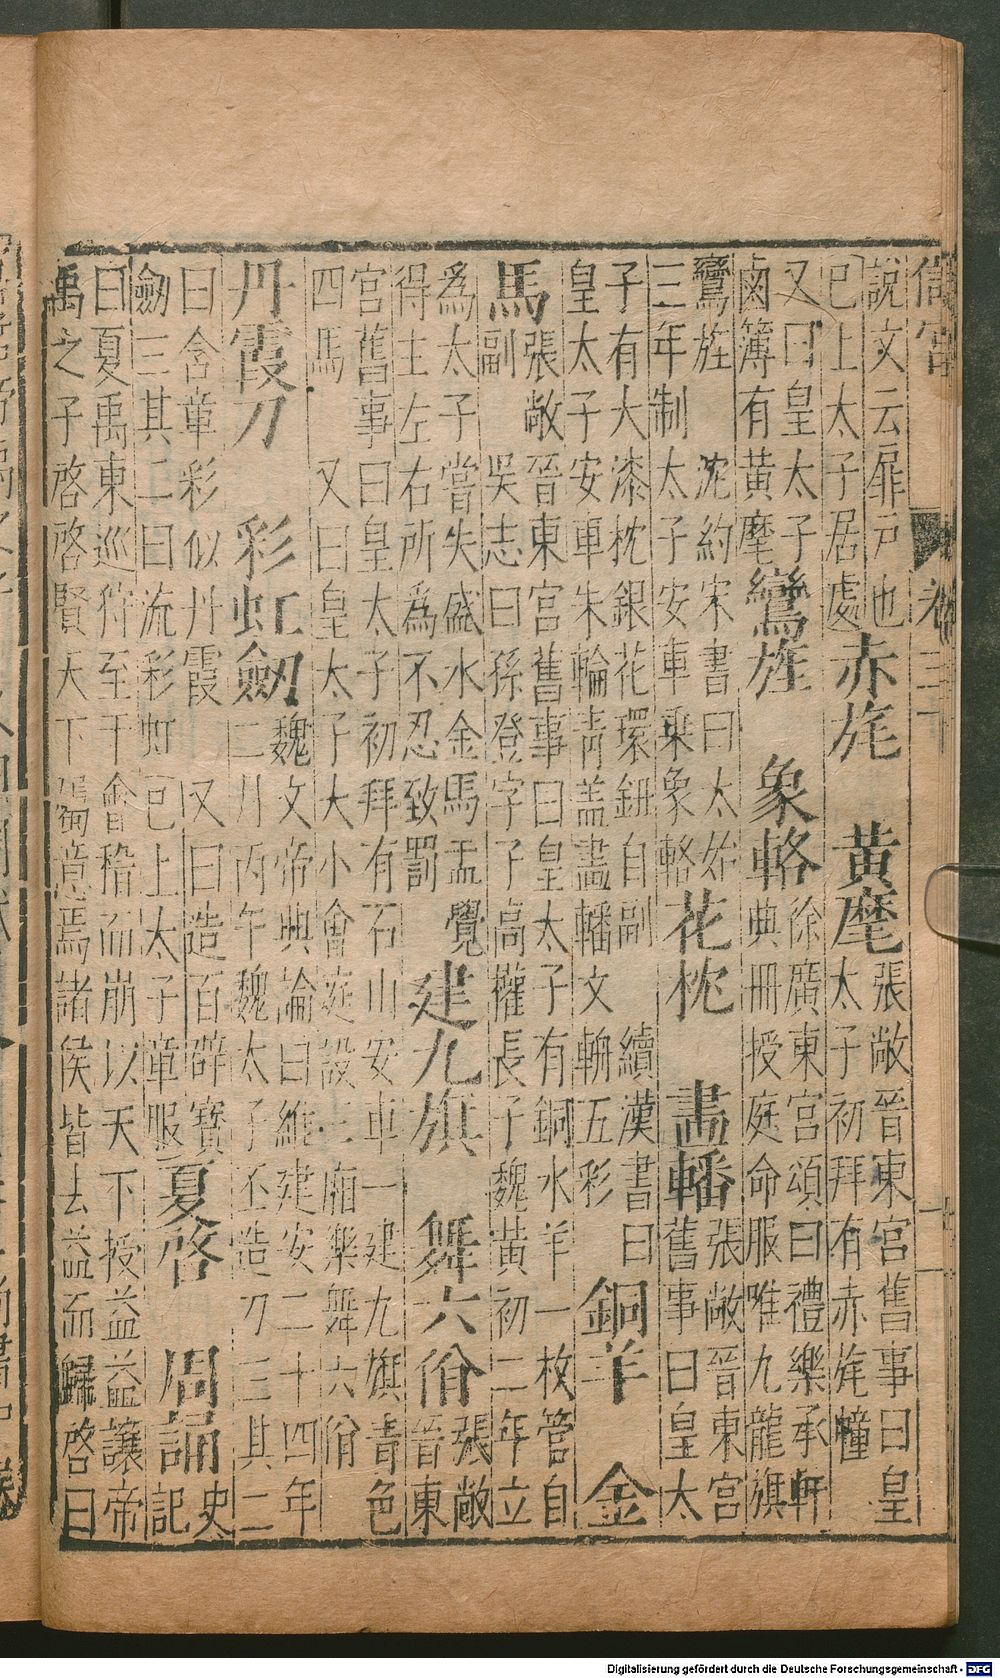 信宮 卷三十 十一
說文云扉戶也
巳上太子居處
赤旄 黃麾
張敞晉東宮舊事曰皇
太子初拜有赤旄幢
又曰皇太子
鹵簿有黃麾
鸞旌 象輅
徐廣東宮頌曰禮樂承軒
典冊授庭命服唯九龍旗
鸞旌 沈約宋書曰太始
三年制太子安車乗象輅
花枕 畫轓
張敞晉東宮
舊事曰皇太
子有大漆枕銀花環鈕自副 續漢書曰
皇太子安車朱輪青盖畫轓文輈五彩
銅羊 金
馬
張敞晉東宮舊事曰皇太子有銅水羊一枚管自
副 吳志曰孫登字子高權長子魏黃初二年立
爲太子嘗失盛水金馬盂覺
得主左右所爲不忍致罰
建九旗 舞六佾
張敞
晉東
宮舊事曰皇太子初拜有石山安車一建九旗青色
四馬 又曰皇太子大小會庭設三廂樂舞六佾
丹霞刀 彩虹劒
魏文帝典論曰維建安二十四年
二月丙午魏太子丕造刀三其二
曰含章彩似丹霞 又曰造百辟寶
劒三其二曰流彩虹 巳上太子章服
夏啓 周誦
史
記
曰夏禹東巡狩至于會稽而崩以天下授益益讓帝
禹之子啓啓賢天下屬意焉諸侯皆去益而歸啓曰
Digitalisierung gefördert durch die Deutsche Forschungsgemeinschaft - DFG